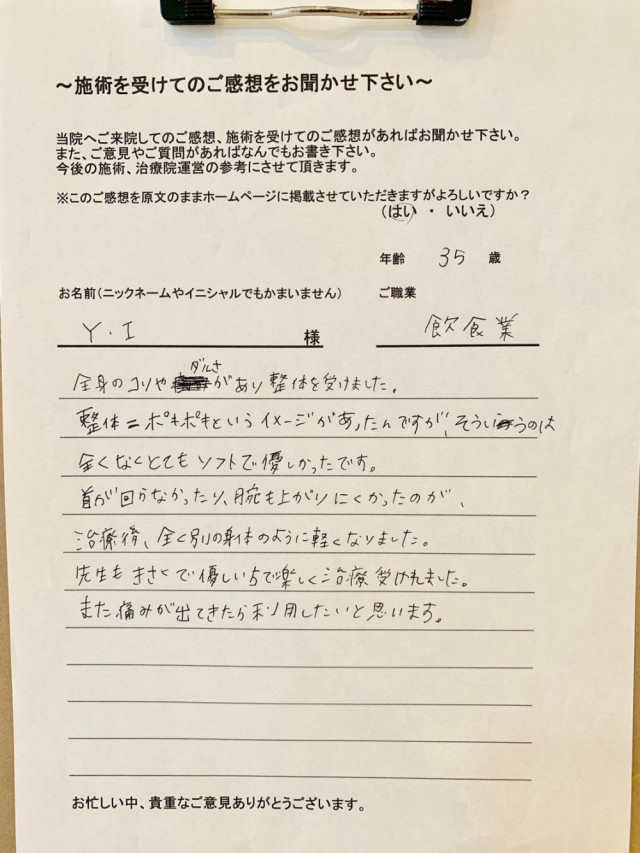 ～施術を受けてのご感想をお聞かせ下さい～
当院へご来院してのご感想、施術を受けてのご感想があればお聞かせ下さい。
また、ご意見やご質問があればなんでもお書き下さい。
今後の施術、治療院運営の参考にさせて頂きます。
※このご感想を原文のままホームページに掲載させていただきますがよろしいですか？
（はい ・ いいえ）
年齢 35 歳
お名前（ニックネームやイニシャルでもかまいません） ご職業
Y・I 様 飲食業
全身のコリやダルさがあり整体を受けました。
整体＝ポキポキというイメージがあったんですが、そういうのは
全くなくとてもソフトで優しかったです。
首が回らなかったり、腕も上がりにくかったのが、
治療後、全く別の身体のように軽くなりました。
先生もきさくで優しい方で楽しく治療受けれました。
また痛みが出てきたら利用したいと思います。
お忙しい中、貴重なご意見ありがとうございます。